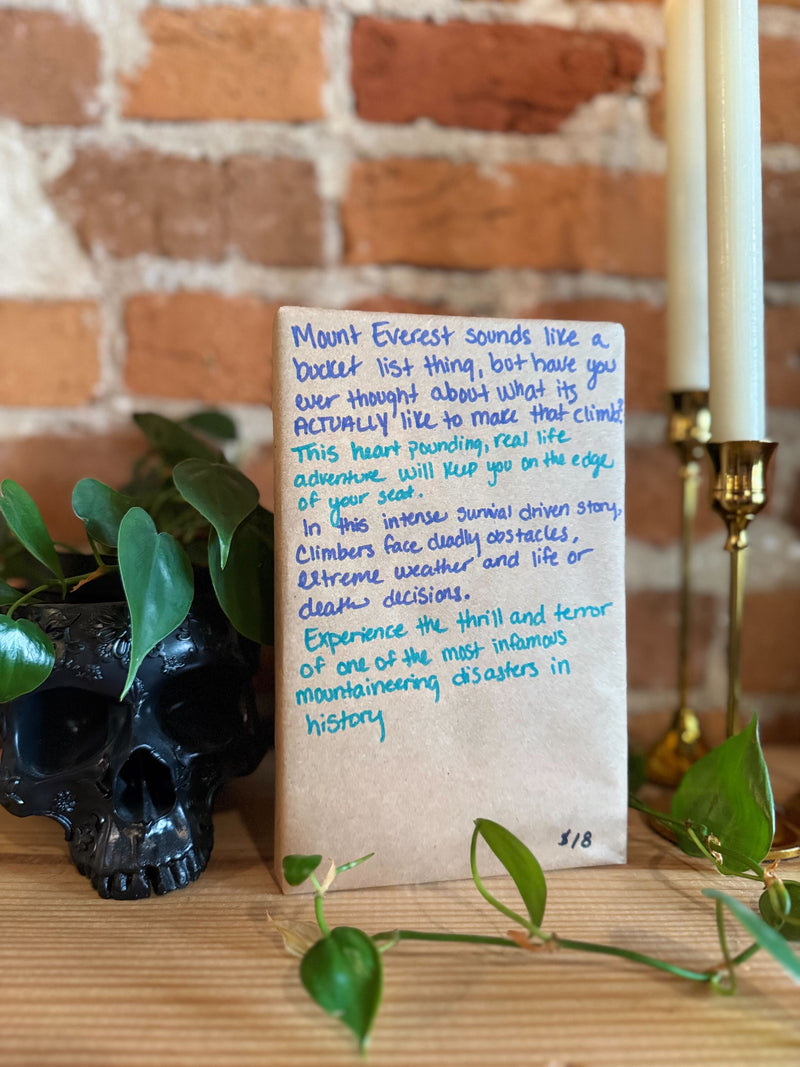 Mount Everest sounds like a
bucket list thing, but have you
ever thought about what its
ACTUALLY like to make that climb?
This heart pounding, real life
adventure will keep you on the edge
of your seat.
In this intense survival driven story,
Climbers face deadly obstacles,
extreme weather and life or
death decisions.
Experience the thrill and terror
of one of the most infamous
mountaineering disasters in
history
$18